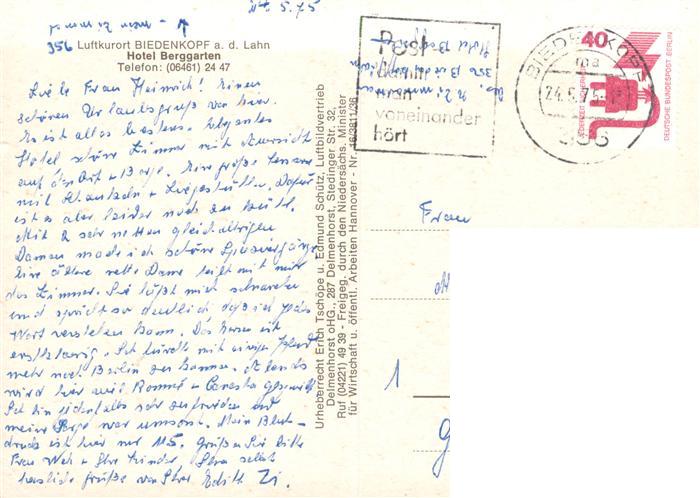 24.5.75
356 Luftkurort BIEDENKOPF a. d. Lahn
Hotel Berggarten
Telefon: (06461) 24 47
Liebe Frau Heinrich! Einen
schönen Urlaubsgruß von hier.
Es ist alles bestens. Elegantes
Hotel schöne Zimmer mit Aussicht
auf den Ort + Berge. Eine große Terrasse
mit Schaukeln + Liegestühlen. Dafür
ist es aber leider noch zu kühl.
Mit 2 sehr netten gleichaltrigen
Damen mache ich schöne Spaziergänge
Eine ältere nette Dame teilt mit mir
das Zimmer. Sie läßt mich schnarchen
und spricht so deutlich, daß ich jedes
Wort verstehen kann. Das Essen ist
erstklassig. Ich fürchte mit einigen Pfund
mehr nach Berlin zu kommen. Abends
wird hier viel Rommé + Canasta gespielt
Ich bin jedenfalls sehr zufrieden und
meine Sorge war umsonst. Mein Blut-
druck ist hier nur 115. Grüßen Sie bitte
Frau Weh + Ihre Kinder Ihnen selbst
herzliche Grüße von Ihrer Edith Zi.
Urheberrecht Erich Tschöpe u. Edmund Schütz, Luftbildvertrieb
Delmenhorst oHG., 287 Delmenhorst, Stedinger Str. 32,
Ruf (04221) 49 39 - Freigeg. durch den Niedersächs. Minister
für Wirtschaft u. öffentl. Arbeiten Hannover - Nr. 16/3811/36
Post
damit
man
voneinander
hört
356 Biedenkopf
Hotel Berggarten
BIEDENKOPF
ma
24.5.75
356
40
JEDERZEIT SICHERHEIT
DEUTSCHE BUNDESPOST BERLIN
Frau
1